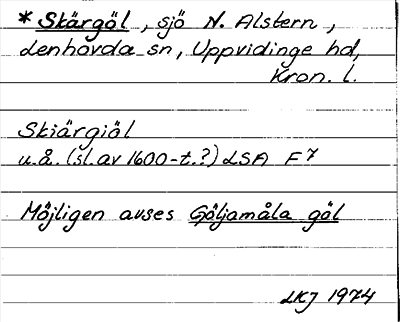 * Skärgöl, sjö N. Alstern,
Lenhovda sn, Uppvidinge hd,
Kron. l.
Skiärgiöl
u.å. (sl. av 1600-t.?) LSA F 7
Möjligen avses Göljamåla göl
LKJ 1974